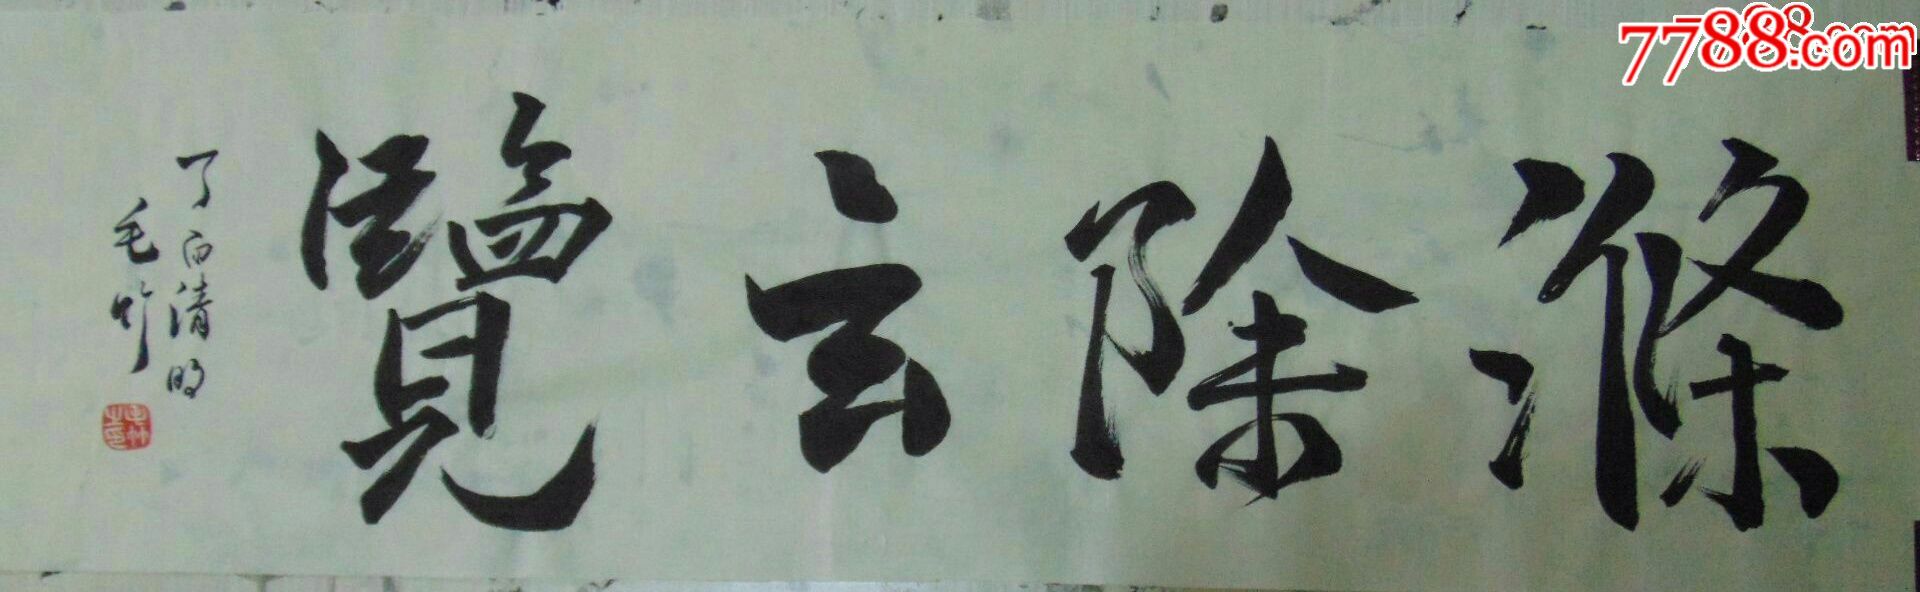 滌除玄覽
丁酉清明
毛竹
7788.com